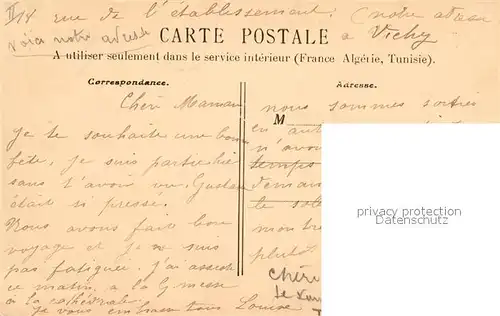 14 rue de l'établessement. (notre adresse
voici notre adresse
CARTE POSTALE
a Vichy
A utiliser seulement dans le service intérieur (France Algérie, Tunisie).
Correspondance.
Adresse.
Chère Maman
je te souhaite une bonne
fête, je suis partie
sans t'avoir vu. Gustave
était si pressé.
Nous avons fait bon
voyage et je ne suis
pas fatiguée. j'ai assisté
ce matin, a la G messe
a la cathédrale
Je vous embrasse tous Louise
nous sommes sortis
M
en aut
n'avon
temps
deman
le sole
montre
plutôt
chéri
privacy protection
Datenschutz